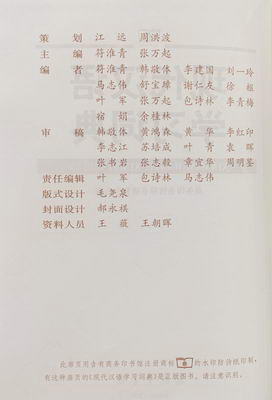 策　　划　　江　远　周洪波
主　　编　　符淮青　张万起
编　　者　　符淮青　韩敬体　李建国　刘一玲
马志伟　舒宝璋　谢仁友　徐　枢
叶　军　张万起　包诗林　李青梅
宿　娟　余桂林
审　　稿　　韩敬体　黄鸿森　黄　华　李红印
李志江　苏培成　叶　青　袁　晖
张书岩　张志毅　章宜华　周明鉴
责任编辑　　叶　军　包诗林　马志伟
版式设计　　毛尧泉
封面设计　　郝永祺
资料人员　　王　薇　王朝晖
此扉页用含有商务印书馆注册商标 的水印防伪纸印制，
有这种扉页的《现代汉语学习词典》是正版图书。请注意识别。